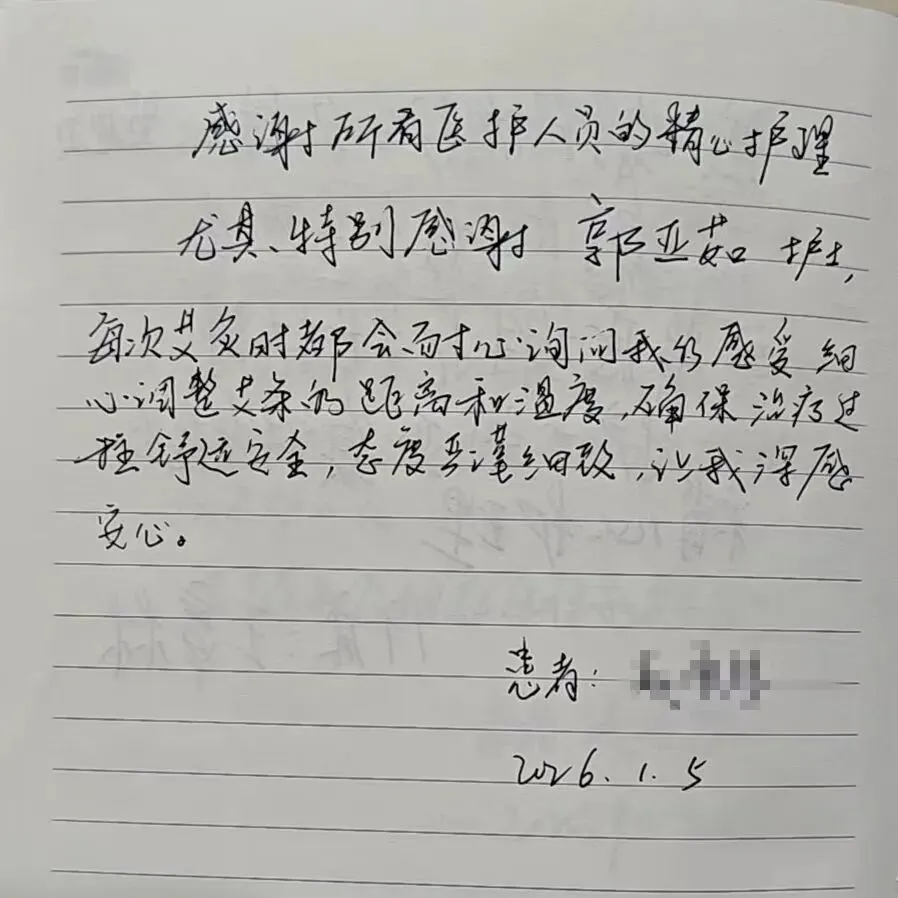 感谢所有医护人员的精心护理
尤其、特别感谢 郭亚茹 护士,
每次艾灸时都会耐心询问我的感受 细
心调整艾条的距离和温度,确保治疗过
程舒适安全,态度严谨细致,让我深感
安心。
患者:
2026.1.5